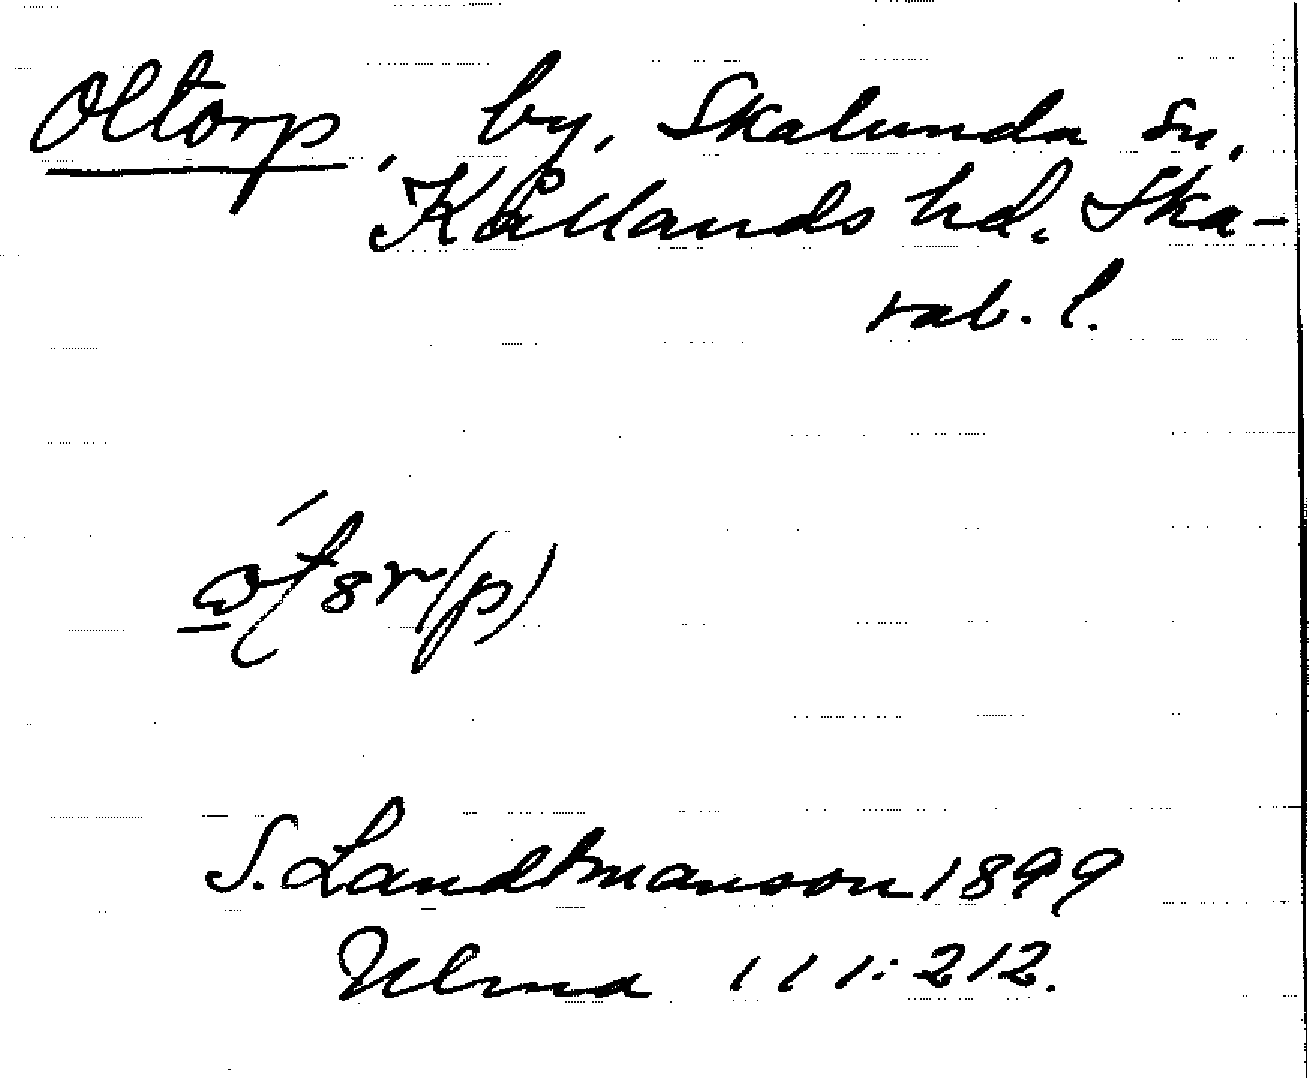 Oltorp, by, Skalunda sn,
Kållands hd. Ska-
rab. l.
S. Landtmanson 1899
Ulma 111:212.